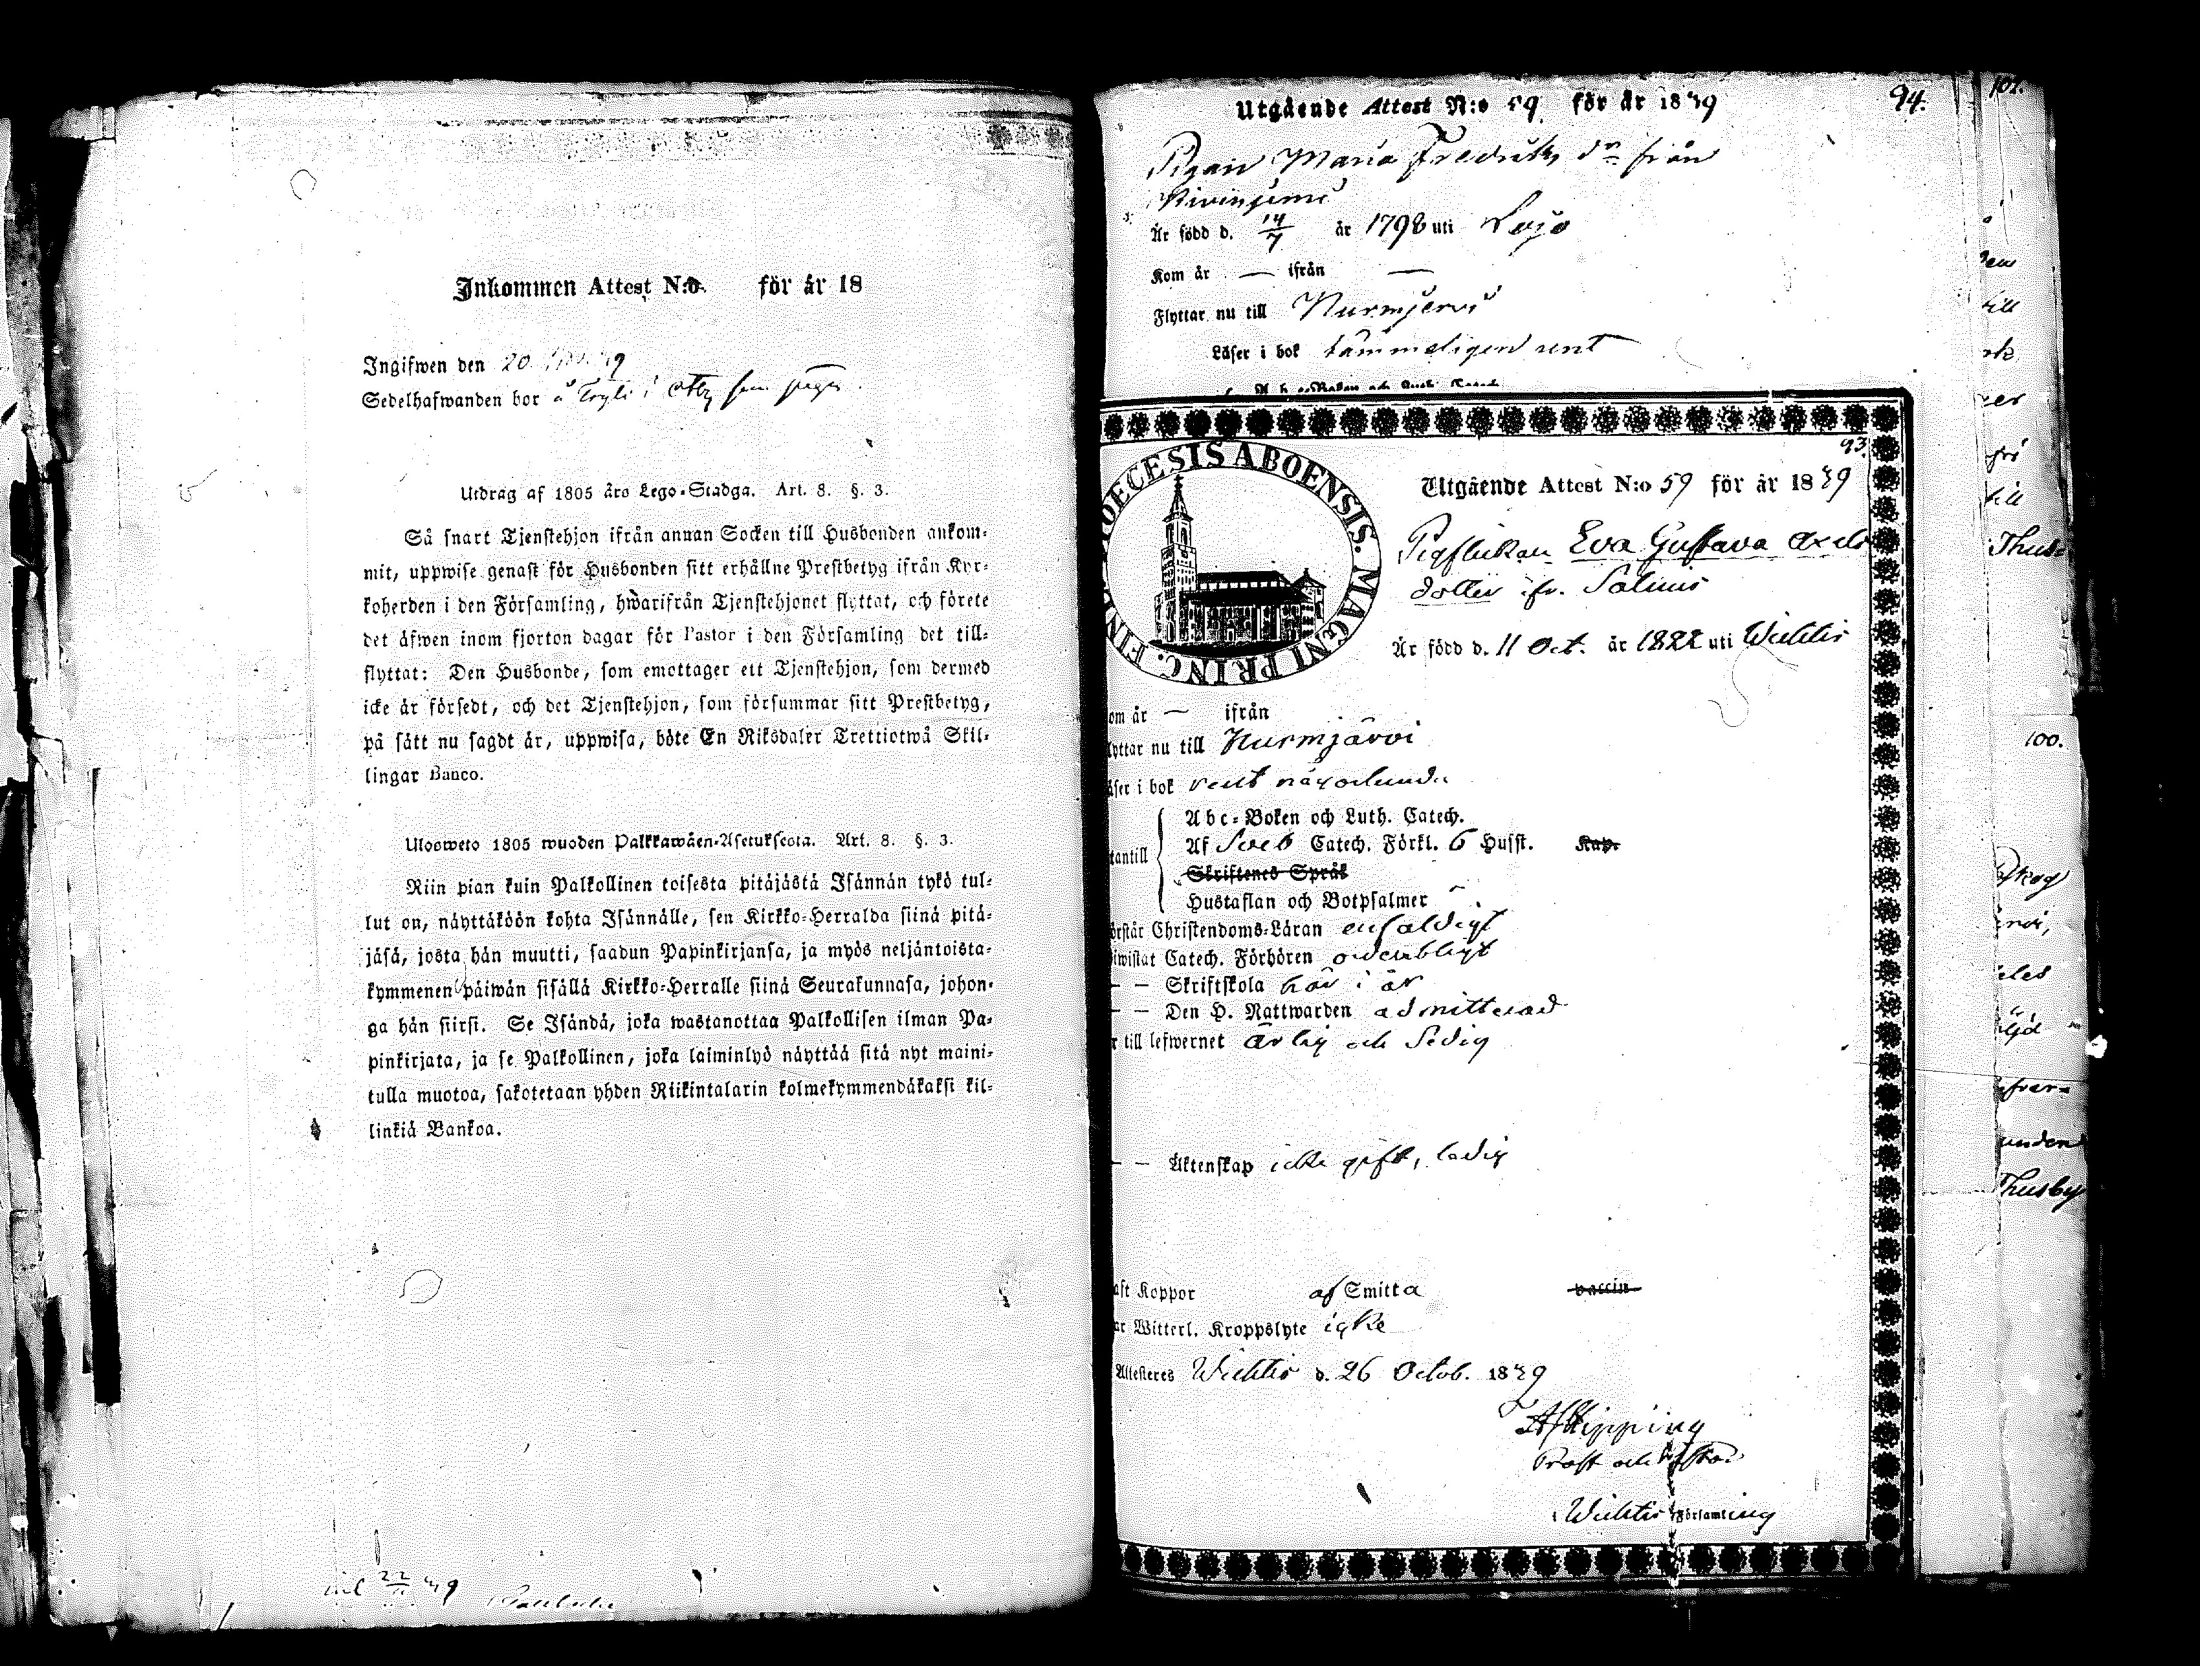 Inkommen Attest N:o. för år 18
Ingifwen den 20
Sedelhafwanden bor å i
Utdrag af 1805 års Lego-Stadga. Art. 8. §. 3.
Så snart Tjenstehjon ifrån annan Socken till Husbonden ankom-
mit, uppwise genast för Husbonden sitt erhållne Prestbetyg ifrån Kyr-
koherden i den Församling, hwarifrån Tjenstehjonet flyttat, och förete
det äfwen inom fjorton dagar för Pastor i den Församling det till-
flyttat: Den Husbonde, som emottager ett Tjenstehjon, som dermed
icke är försedt, och det Tjenstehjon, som försummar sitt Prestbetyg,
på sätt nu sagdt är, uppwisa, böte En Riksdaler Trettiotwå Skil-
lingar Banco.
Uloosweto 1805 wuoden Palkkawäen-Asetuksesta. Art. 8. §. 3.
Niin pian kuin Palkollinen toisesta pitäjästä Isännän tykö tul-
lut on, näyttäköön kohta Isännälle, sen Kirkko-Herralda siinä pitä-
jäsä, josta hän muutti, saadun Papinkirjansa, ja myös neljäntoista-
kymmenen päiwän sisällä Kirkko-Herralle siinä Seurakunnasa, johon-
ga hän siirsi. Se Isändä, joka wastanottaa Palkollisen ilman Pa-
pinkirjata, ja se Palkollinen, joka laiminlyö näyttää sitä nyt maini-
tulla muotoa, sakotetaan yhden Riikintalarin kolmekymmendäkaksi kil-
linkiä Bankoa.
Utgående Attest N:o 59 för år 1849
94.
101.
Pigan Maria Fredriks dr från
Är född d. 14/7 år 1798 uti Lojo
Kom år — ifrån —
Flyttar nu till Nurmjervi
Läser i bok tämmeligen rent
93.
DIOECESIS ABOENSIS. MAGNI PRINC. FINL.
Utgående Attest N:o 59 för år 1849
Pigflickan Eva Gustava Axels
dotter ifr. Salmis
Är född d. 11 Oct. år 1822 uti Wichtis
om år — ifrån
lyttar nu till Nurmjärvi
äser i bok rent någorlunda
Abc-Boken och Luth. Catech.
tantill Af Sveb Catech. Förkl. 6 Husst. Kap.
Skriftenes Språk
Hustaflan och Botpsalmer
örstår Christendoms-Läran enfaldigt
iwistat Catech. Förhören ordentligt
— — Skriftskola här i år
— — Den H. Nattwarden admitterad
r till lefwernet ärlig och sedig
— — Äktenskap icke gift, ledig
aft Koppor af Smitta vaccin
ar Witterl. Kroppslyte icke
Attesteres Wichtis d. 26 Octob. 1849
Prost och
Wichtis Församling
100.
Thusby